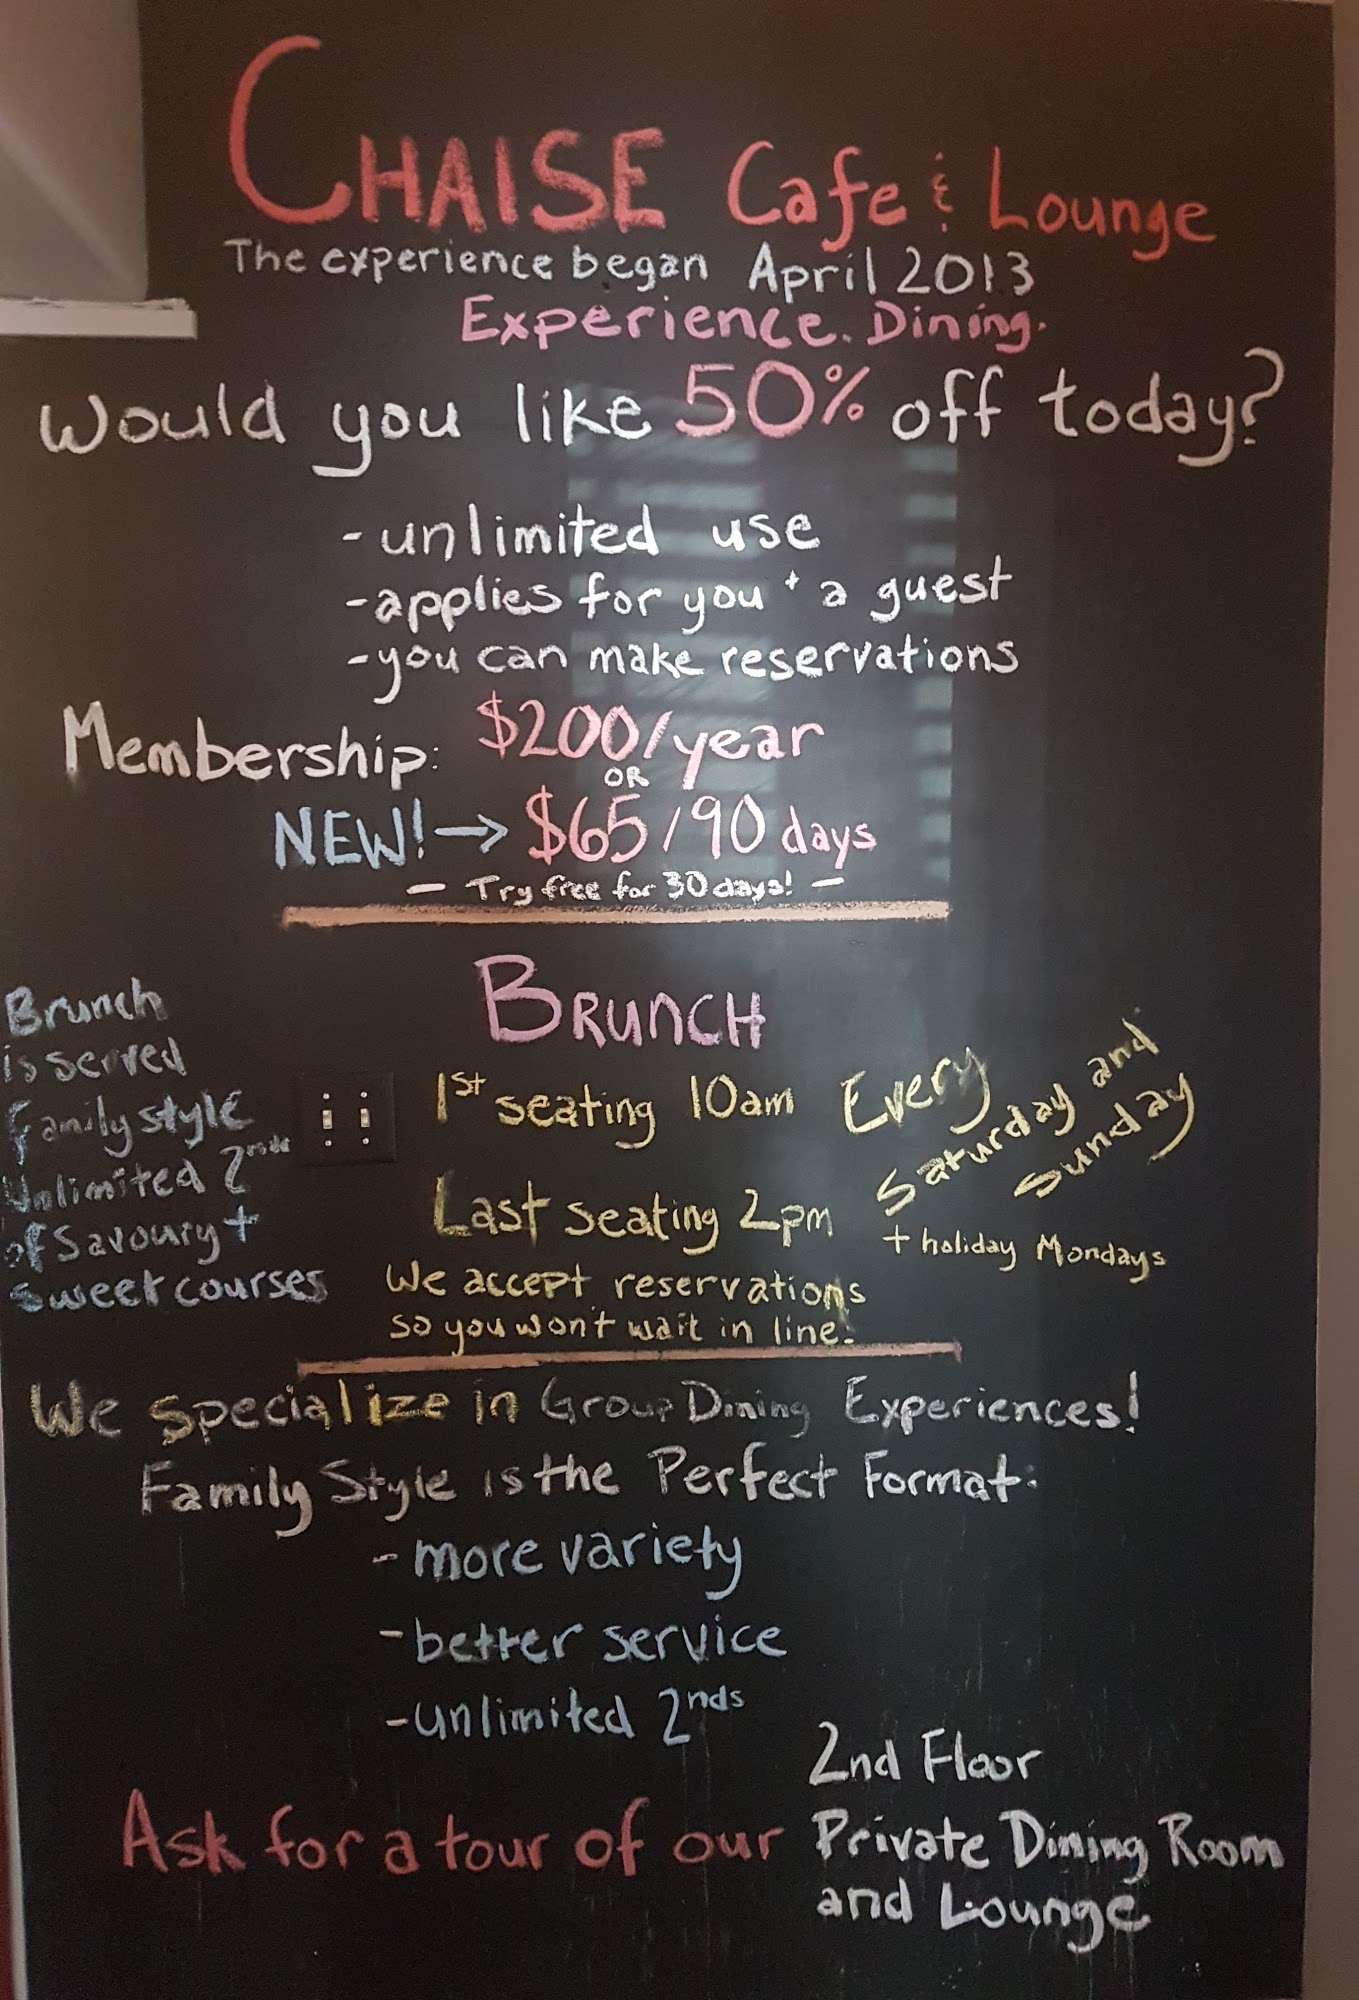 CHAISE Cafe & Lounge
The experience began April 2013
Experience. Dining.
Would you like 50% off today?
- unlimited use
- applies for you + a guest
- you can make reservations
Membership: $200/year
OR
NEW! → $65/90 days
— Try free for 30 days! —
BRUNCH
Brunch
is served
Family style
Unlimited 2nds
of Savoury +
sweet courses
1st seating 10am
Last seating 2pm
Every
Saturday and
Sunday
+ holiday Mondays
We accept reservations
so you won't wait in line.
We specialize in Group Dining Experiences!
Family Style is the Perfect Format:
- more variety
- better service
- unlimited 2nds
Ask for a tour of our
2nd Floor
Private Dining Room
and Lounge